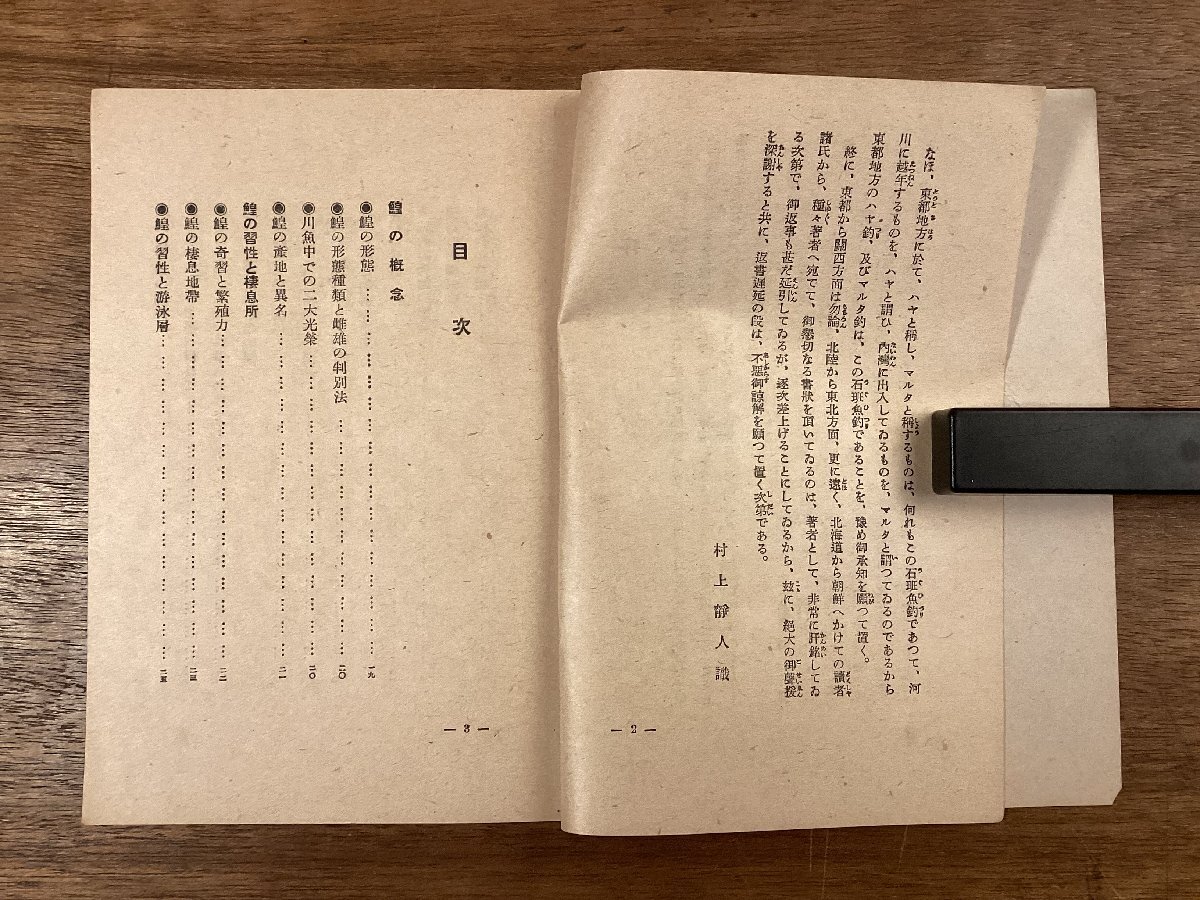 なほ、東都地方に於て、ハヤと稱し、マルタと稱するものは、何れもこの石斑魚釣であつて、河
川に越年するものを、ハヤと謂ひ、內灣に出入してゐるものを、マルタと謂つてゐるのであるから
東都地方のハヤ釣、及びマルタ釣は、この石斑魚釣であることを、豫め御承知を願つて置く。
終に、東都から關西方面は勿論、北陸から東北方面、更に遠く、北海道から朝鮮へかけての讀者
諸氏から、種々著者へ宛てて、御懇切なる書狀を頂いてゐるのは、著者として、非常に肝銘してゐ
る次第で、御返事も甚だ延引してゐるが、逐次差上げることにしてゐるから、玆に、絕大の御聲援
を深謝すると共に、返書遲延の段は、不惡御諒解を願つて置く次第である。
村上靜人識
— 2 —
目次
鰉の槪念
◉鰉の形態………一九
◉鰉の形態種類と雌雄の判別法………二〇
◉川魚中での二大光榮………二〇
◉鰉の產地と異名………二一
鰉の習性と棲息所
◉鰉の奇習と繁殖力………二二
◉鰉の棲息地帶………二三
◉鰉の習性と游泳層………二五
— 3 —